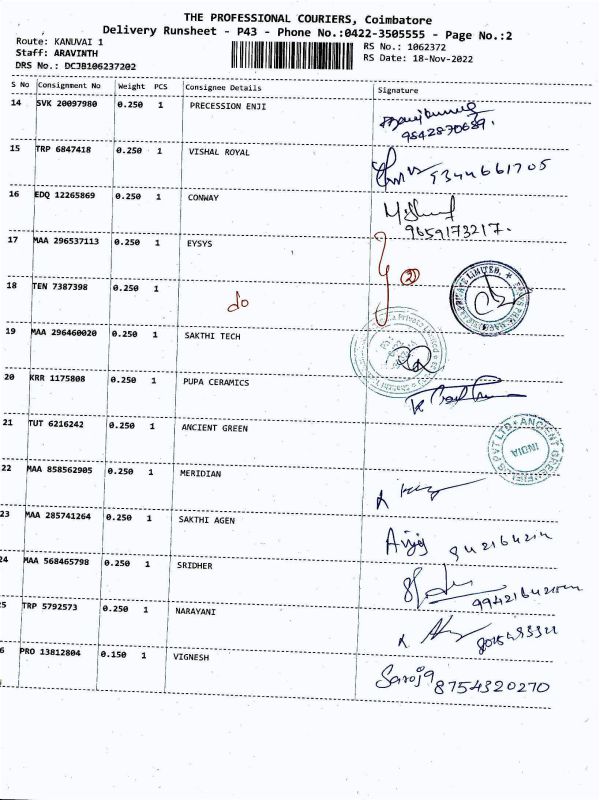 THE PROFESSIONAL COURIERS, Coimbatore
Delivery Runsheet - P43 - Phone No.:0422-3505555 - Page No.:2
Route: KANUVAI 1
Staff: ARAVINTH
DRS No.: DCJB106237202
RS No.: 1062372
RS Date: 18-Nov-2022
S No Consignment No Weight PCS Consignee Details Signature
14 SVK 20097980 0.250 1 PRECESSION ENJI
9842870689.
15 TRP 6847418 0.250 1 VISHAL ROYAL 9344661705
16 EDQ 12265869 0.250 1 CONWAY
9659173217.
17 MAA 296537113 0.250 1 EYSYS
2
18 TEN 7387398 0.250 1 do
PRIVATE LIMITED
19 MAA 296460020 0.250 1 SAKTHI TECH
20 KRR 1175808 0.250 1 PUPA CERAMICS
21 TUT 6216242 0.250 1 ANCIENT GREEN
PVT LTD ANCIENT GREEN
INDIA
22 MAA 858562905 0.250 1 MERIDIAN
23 MAA 285741264 0.250 1 SAKTHI AGEN
24 MAA 568465798 0.250 1 SRIDHER
25 TRP 5792573 0.250 1 NARAYANI
6 PRO 13812804 0.150 1 VIGNESH Saroja 8754320270